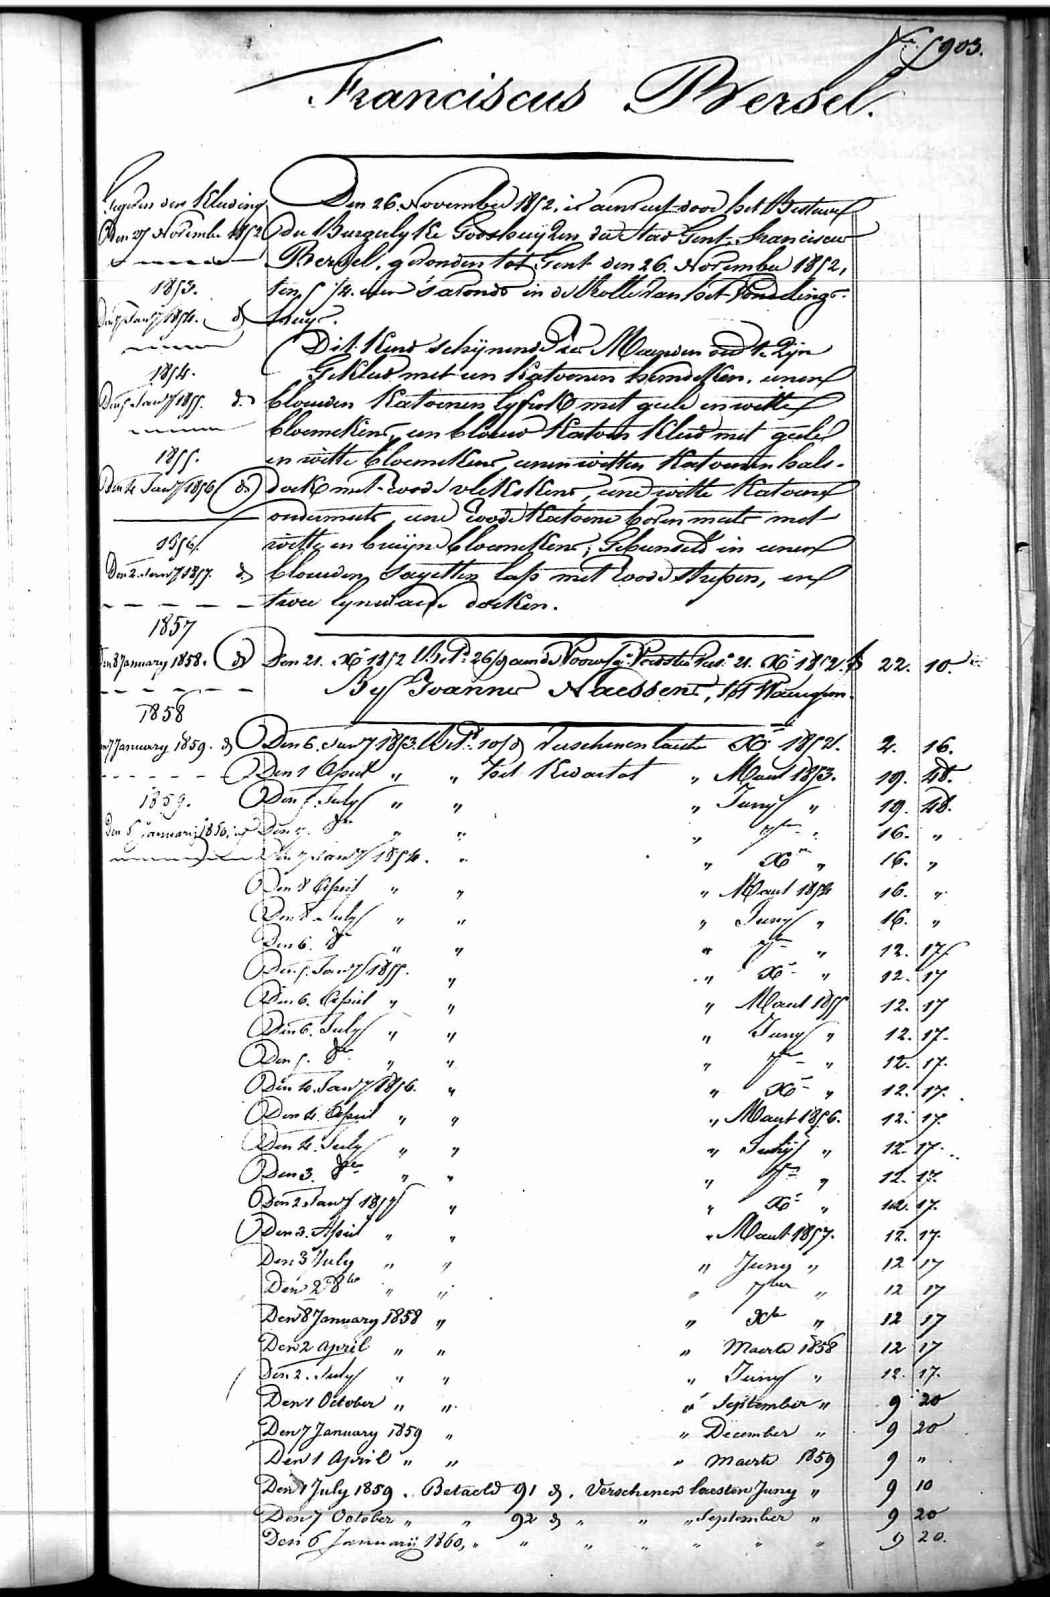 N.º 903.
Franciscus Bersel.
Den 26. November 1852, is aenveird door het Bestuer
der Burgerlyke Godshuyzen der Stad Gent, Franciscus
Bersel, gevonden tot Gent den 26. November 1852,
ten 5 1/4. uren s'avonds in de Rolle van het Vondeling-
huys.
Dit kind schynende Maenden oud te Zyn
Gekleed met een Katoenen hemdeken, eenen
blauwen Katoenen lyfrok met geele en witte
bloemekens, een blauw Katoen kleed met geele
en witte bloemekens, eenen witten Katoenen hals-
doek met roode vlekskens, eene witte Katoene
ondermuts, eene roode Katoene bovenmuts met
witte en bruyne bloemekens; Gebunseld in eenen
blauwen sayetten lap met roode strepen, en
twee lynwaede doeken.
Kleeding
Den 27 November 1852
1853.
Jany 1854. d.
1854.
Den 5 Jany 1855. d.
1855.
Den 4 Jany 1856 d.
1856.
Den 2 Jany 1857. d.
1857
Den 8 January 1858. d.
1858
7 January 1859. d.
1859.
Den 6 January 1860.
Den 21. Xr 1852 Bet. 26 d. aen de 21. Xr 1852. 22. 10
By Joannes Naessens, tot
Den 6. Jany 1853. Bet. 10 d. Verschenen laeste Xr 1852. 2. 16.
Den 1 April " " Het Kwartal " Maert 1853. 19. 48.
Den July " " " Juny " 19. 48.
Den 7. 8r " " " 7ber " 16. "
Den Jany 1854. " " Xr " 16. "
Den 8 April " " " Maert 1854 16. "
Den 8 July " " " Juny " 16. "
Den 6. 8r " " " 7ber " 12. 17.
Den 5. Jany 1855. " " Xr " 12. 17
Den 6. April " " " Maert 1855 12. 17
Den 6. July " " " Juny " 12. 17.
Den 5. 8r " " " 7ber " 12. 17.
Den 4. Jany 1856. " " Xr " 12. 17.
Den 4. April " " " Maert 1856. 12. 17.
Den 4. July " " " Juny " 12. 17.
Den 3. 8r " " " 7ber " 12. 17.
Den 2 Jany 1857 " " Xr " 12. 17.
Den 3. April " " " Maert 1857. 12. 17.
Den 3 July " " " Juny " 12 17
Den 2 8ber " " " 7ber " 12 17
Den 8 January 1858 " " Xber " 12 17
Den 2 April " " " Maerte 1858 12 17
Den 2. July " " " Juny " 12. 17.
Den 1 October " " " September " 9 20
Den 7 January 1859 " " December " 9 20
Den 1 April " " " Maerte 1859 9 "
Den 1 July 1859. Betaeld 91 d. Verschenen laesten Juny " 9 10
Den 7 October " " 92 d " " " September " 9 20
Den 6 Januarii 1860, " " " " " " " 9 20.